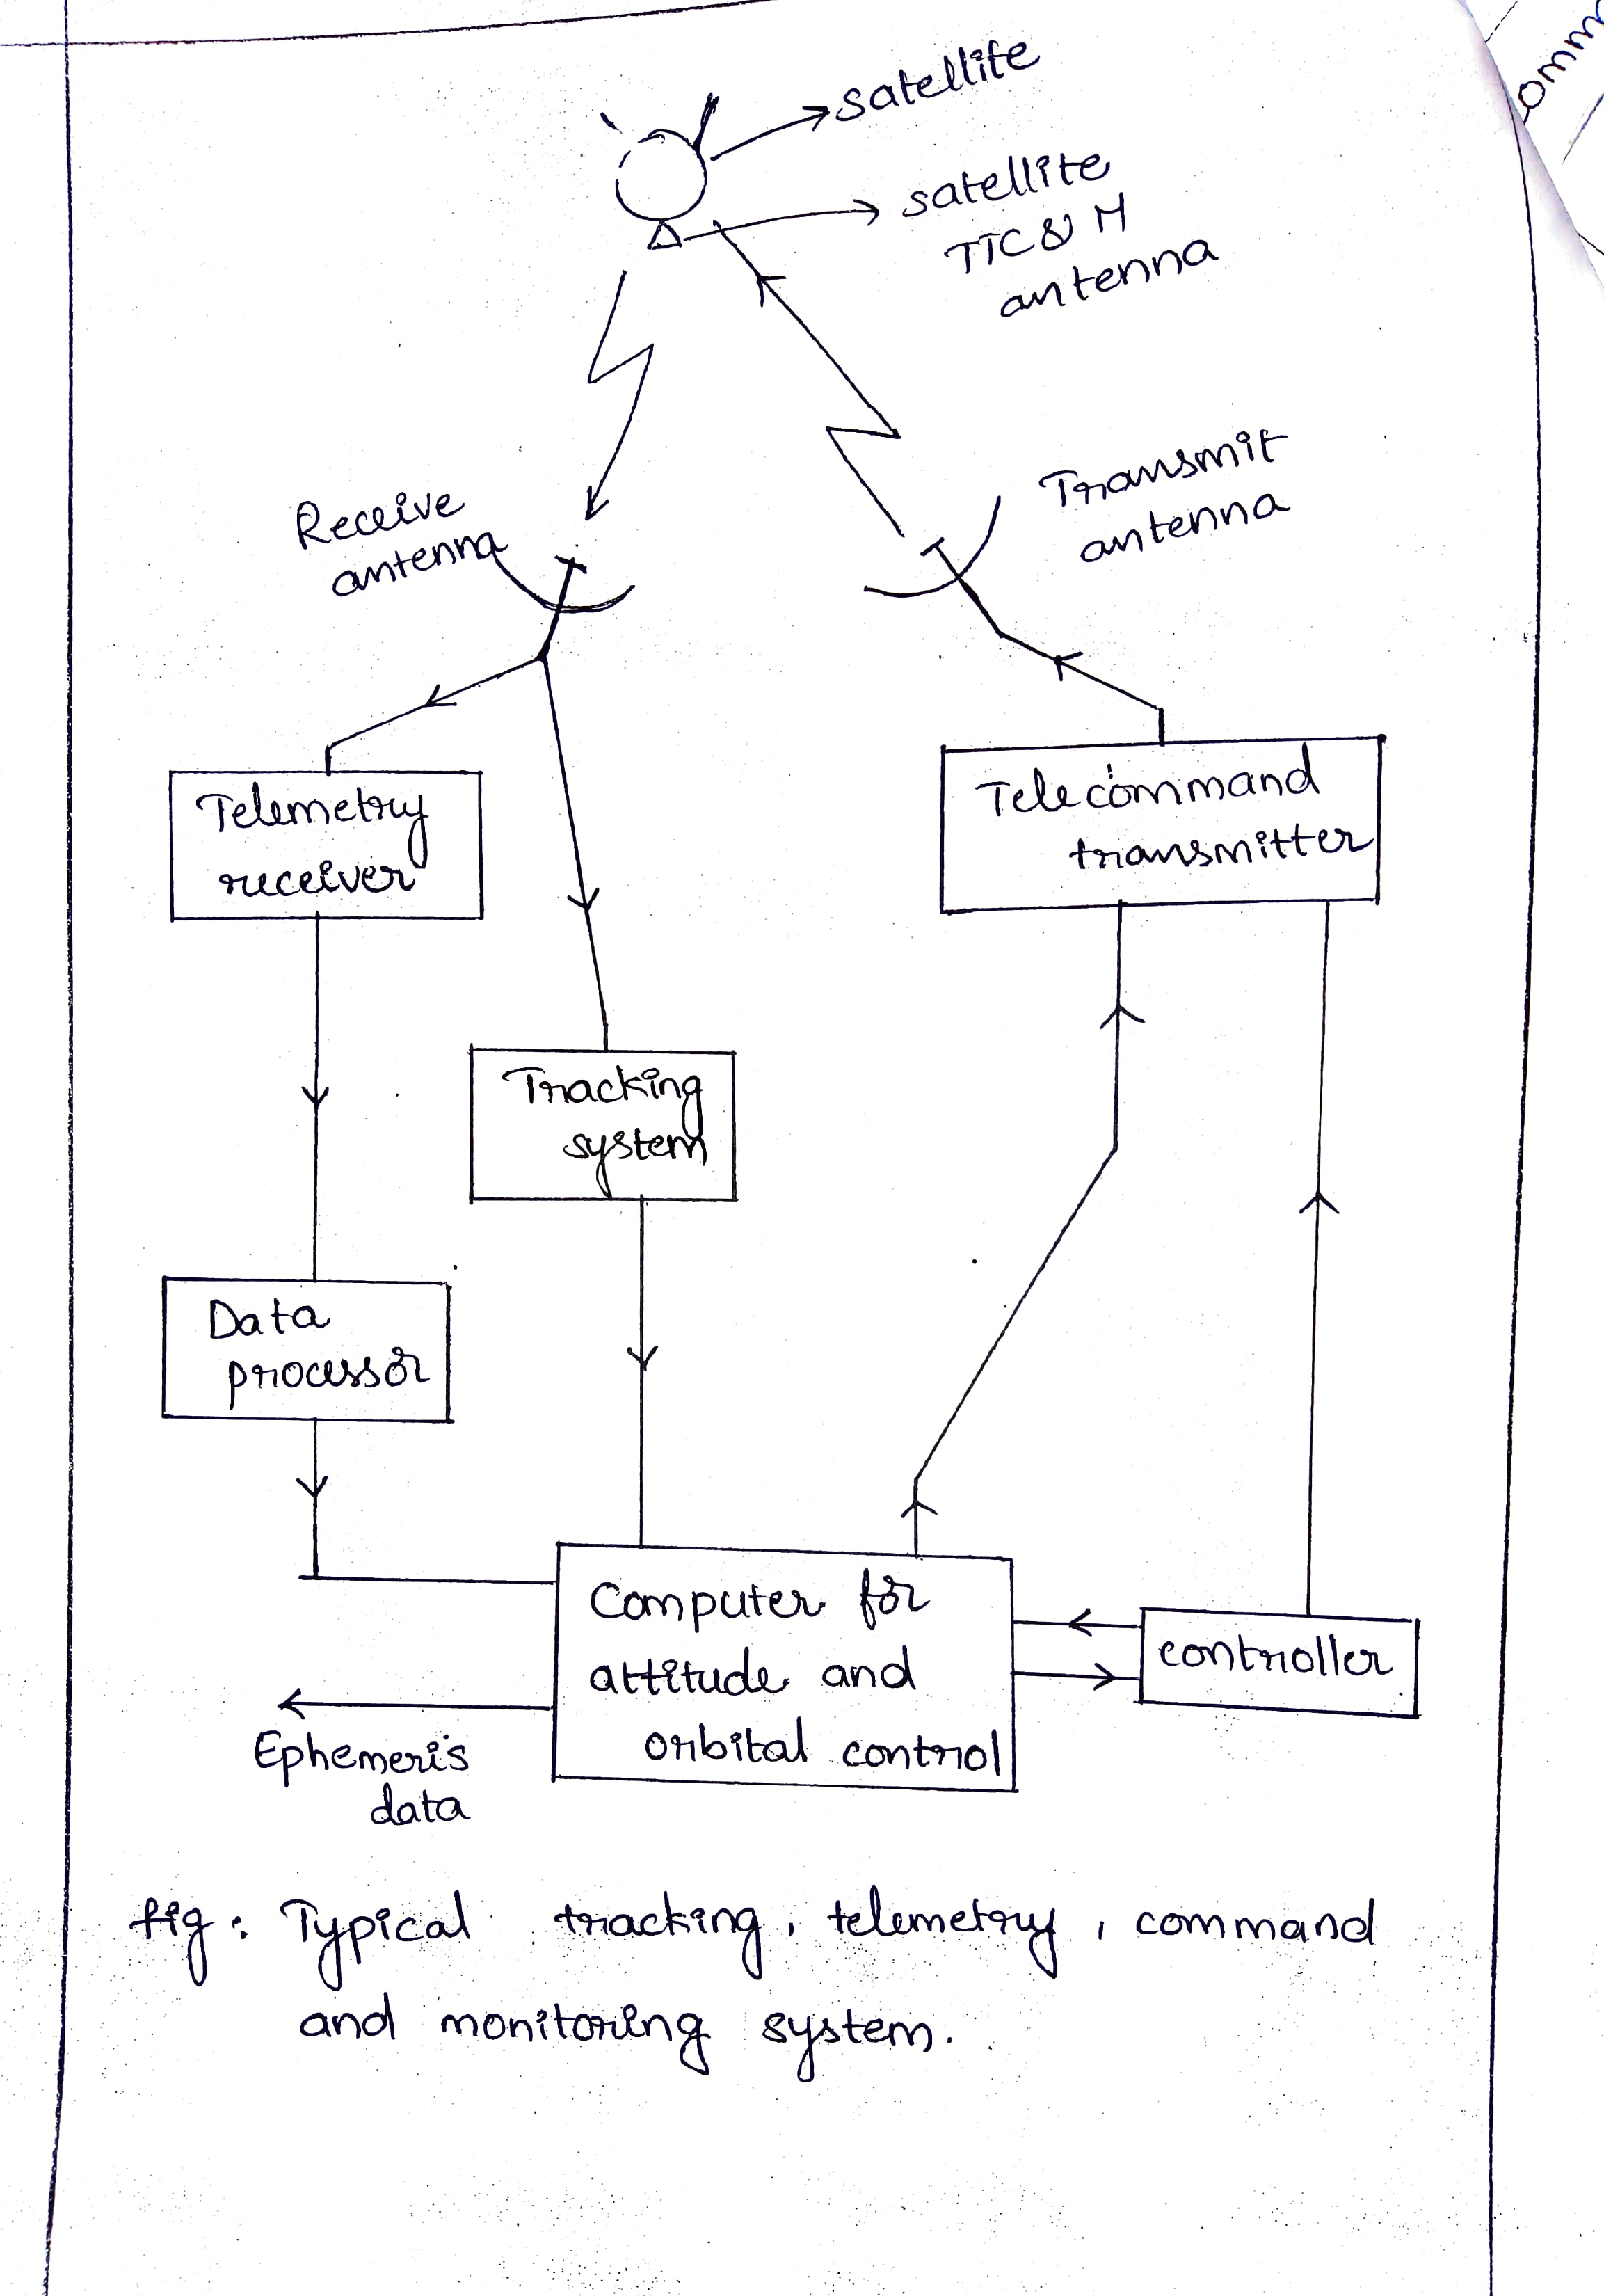 satellite
satellite
TTC & M
antenna
Receive
antenna
Transmit
antenna
Telemetry
receiver
Telecommand
transmitter
Tracking
system
Data
processor
Computer for
attitude and
orbital control
controller
Ephemeris
data
fig: Typical tracking, telemetry, command
and monitoring system.